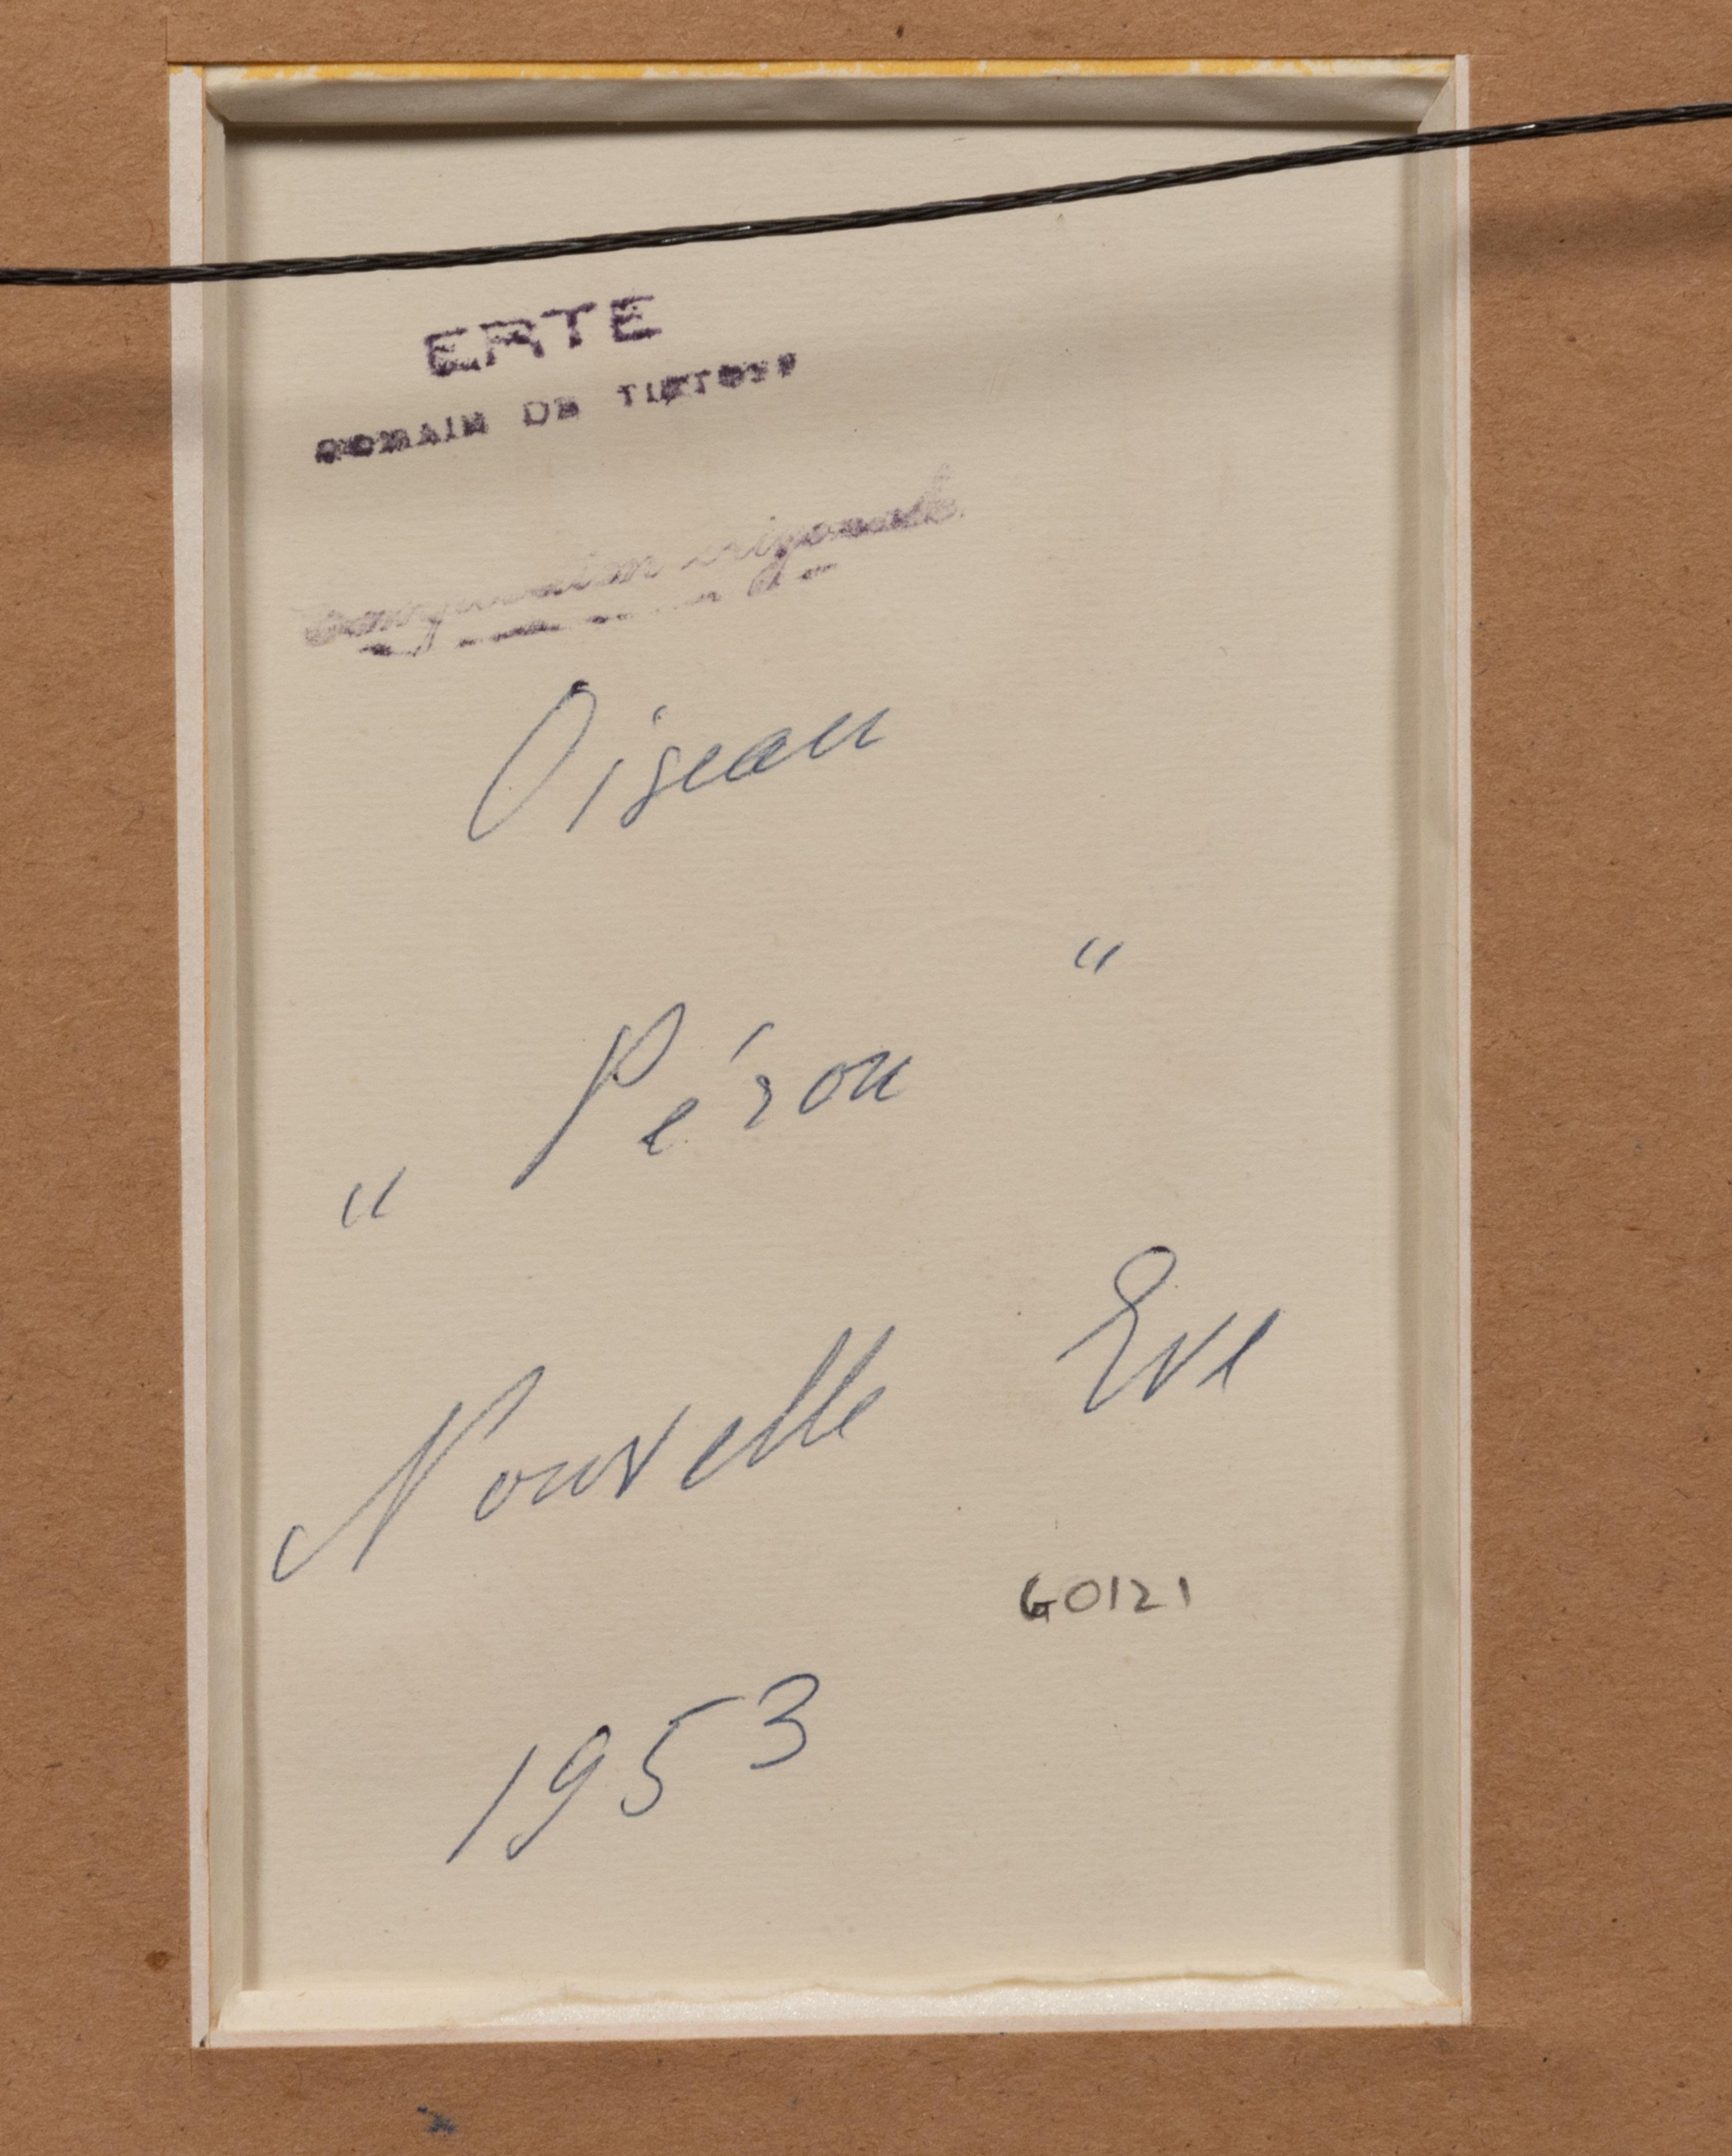 ERTE
ROMAIN DE TIRTOFF
Composition originale
Oiseau
„ Pérou "
Nouvelle Eve
G0121
1953